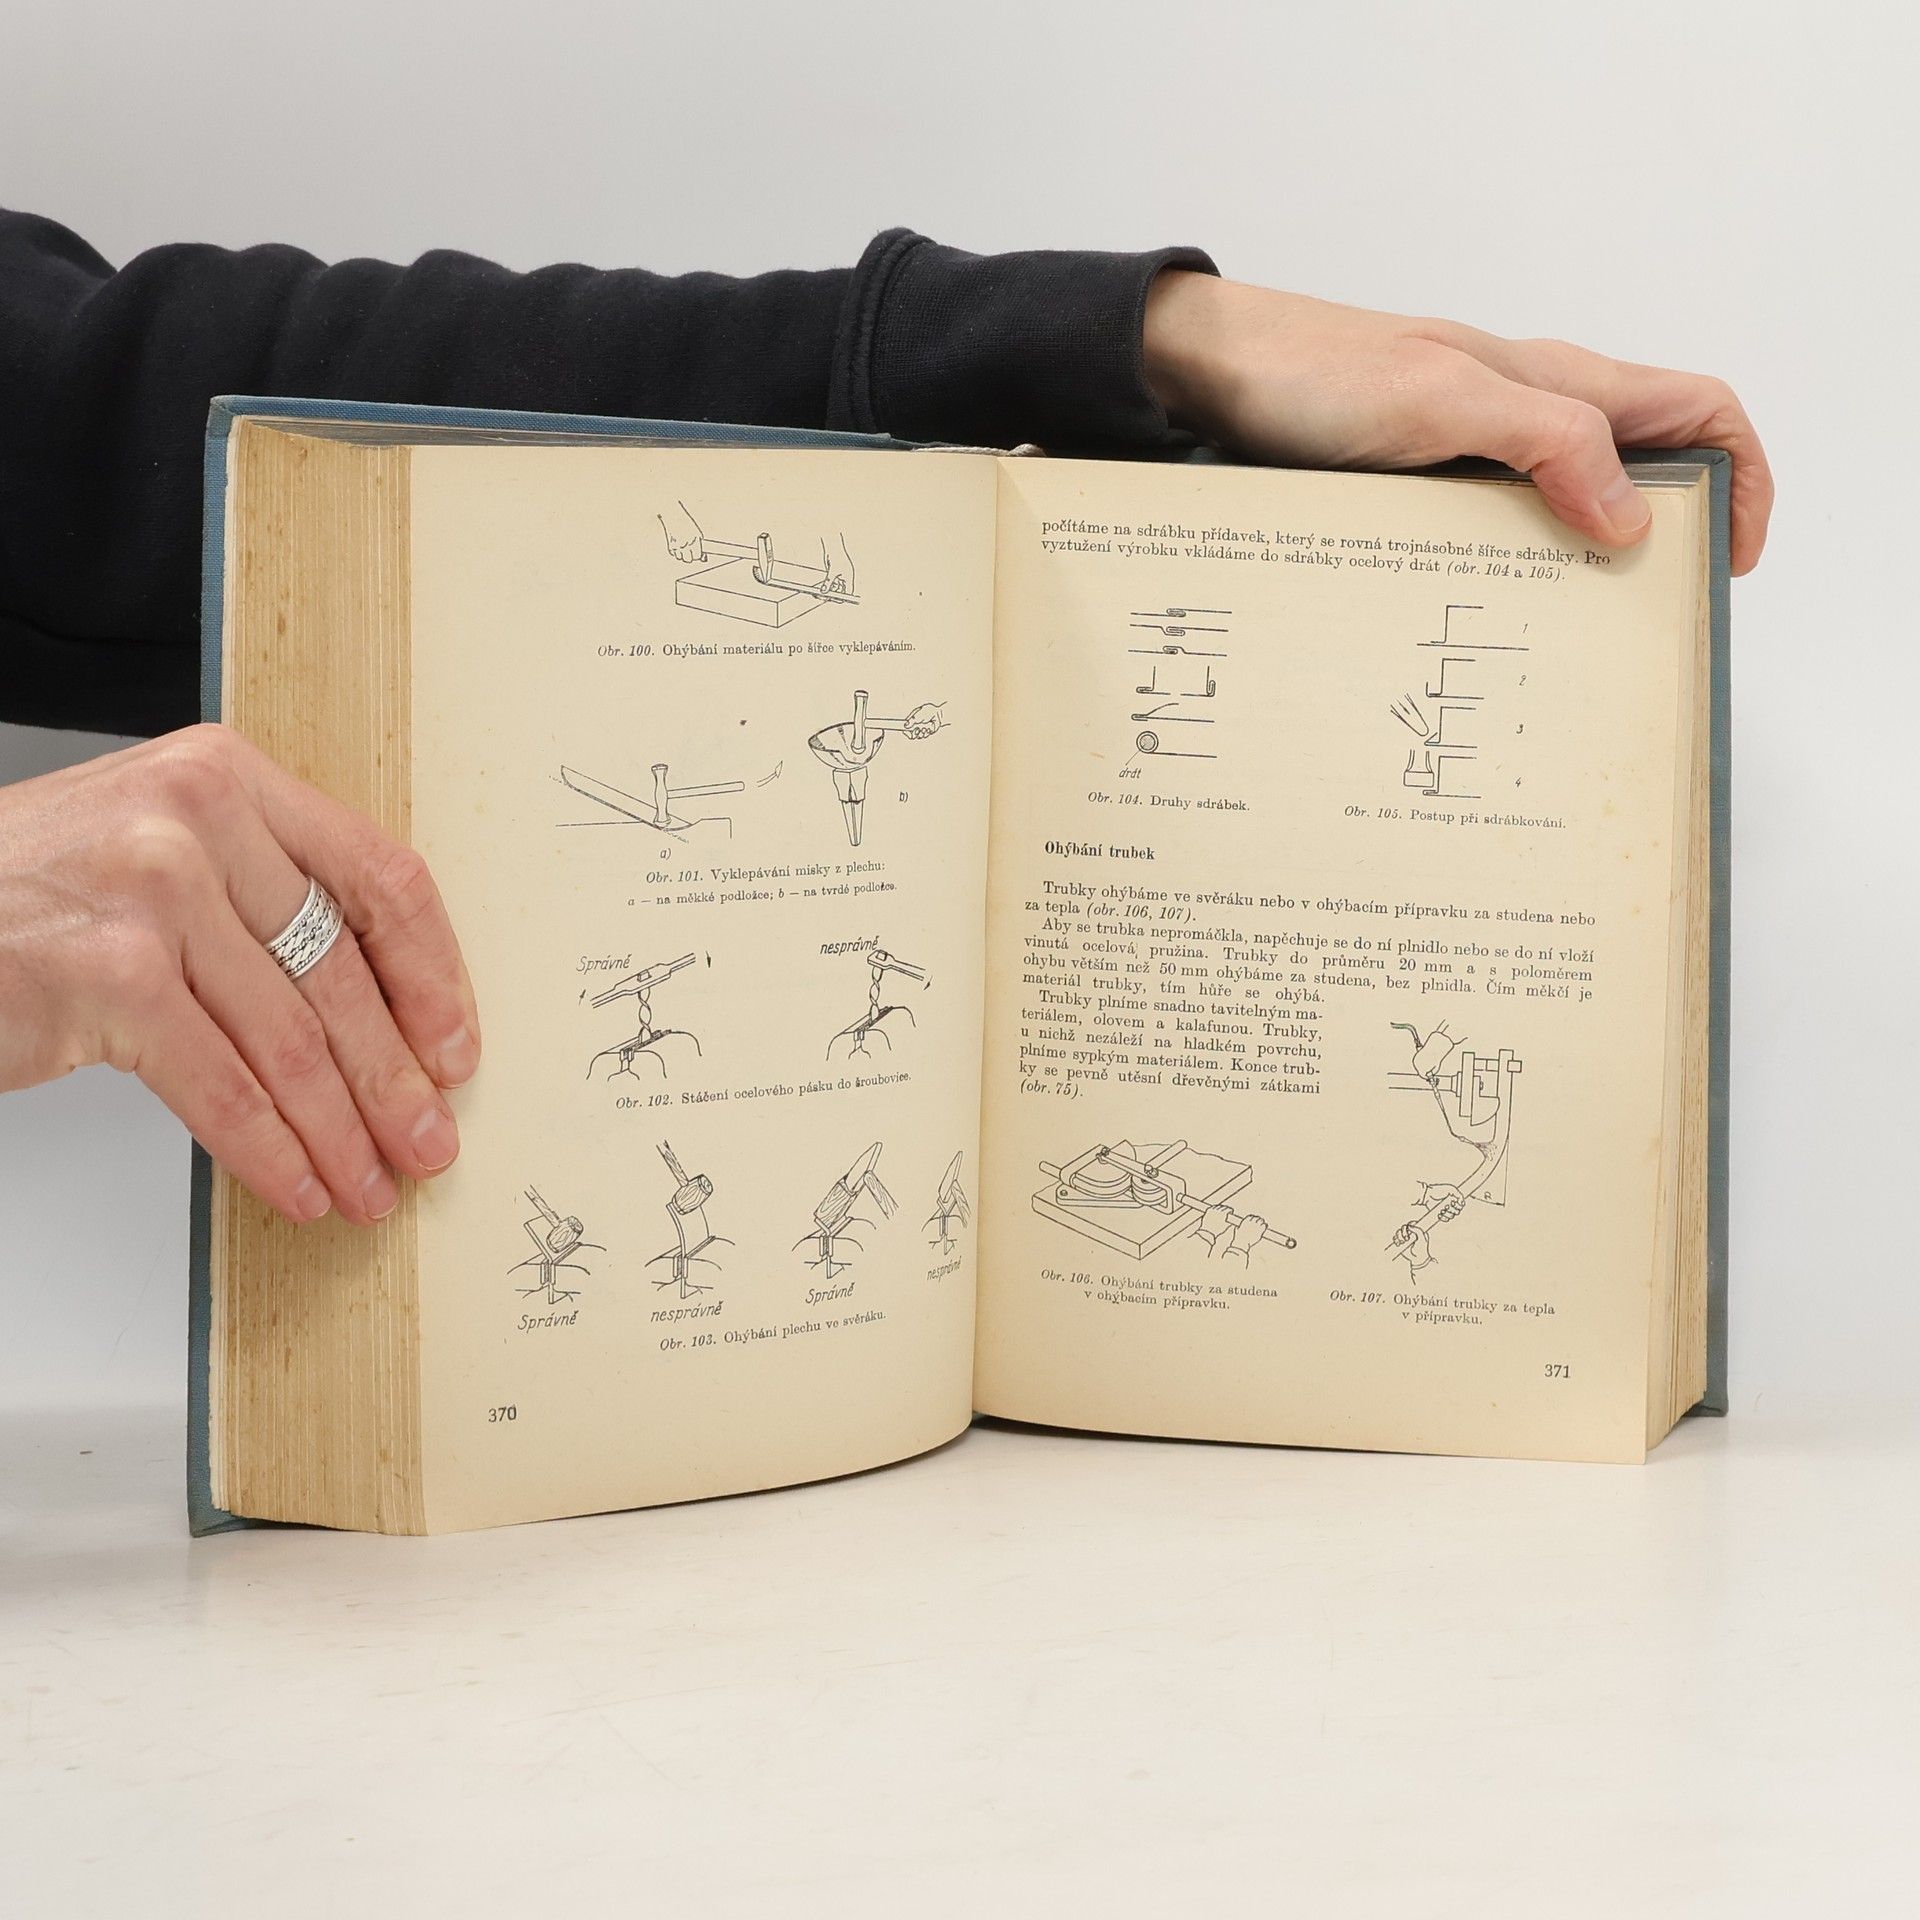 Obr. 100. Ohýbání materiálu po šířce vyklepáváním.
a)
b)
Obr. 101. Vyklepávání misky z plechu:
a — na měkké podložce; b — na tvrdé podložce.
Správně
nesprávně
Obr. 102. Stáčení ocelového pásku do šroubovice.
Správně
nesprávně
Správně
nesprávně
Obr. 103. Ohýbání plechu ve svěráku.
370
počítáme na sdrábku přídavek, který se rovná trojnásobné šířce sdrábky. Pro
vyztužení výrobku vkládáme do sdrábky ocelový drát (obr. 104 a 105).
drát
Obr. 104. Druhy sdrábek.
1
2
3
4
Obr. 105. Postup při sdrábkování.
Ohýbání trubek
Trubky ohýbáme ve svěráku nebo v ohýbacím přípravku za studena nebo
za tepla (obr. 106, 107).
Aby se trubka nepromáčkla, napěchuje se do ní plnidlo nebo se do ní vloží
vinutá ocelová pružina. Trubky do průměru 20 mm a s poloměrem
ohybu větším než 50 mm ohýbáme za studena, bez plnidla. Čím měkčí je
materiál trubky, tím hůře se ohýbá.
Trubky plníme snadno tavitelným ma-
teriálem, olovem a kalafunou. Trubky,
u nichž nezáleží na hladkém povrchu,
plníme sypkým materiálem. Konce trub-
ky se pevně utěsní dřevěnými zátkami
(obr. 75).
R
Obr. 106. Ohýbání trubky za studena
v ohýbacím přípravku.
Obr. 107. Ohýbání trubky za tepla
v přípravku.
371